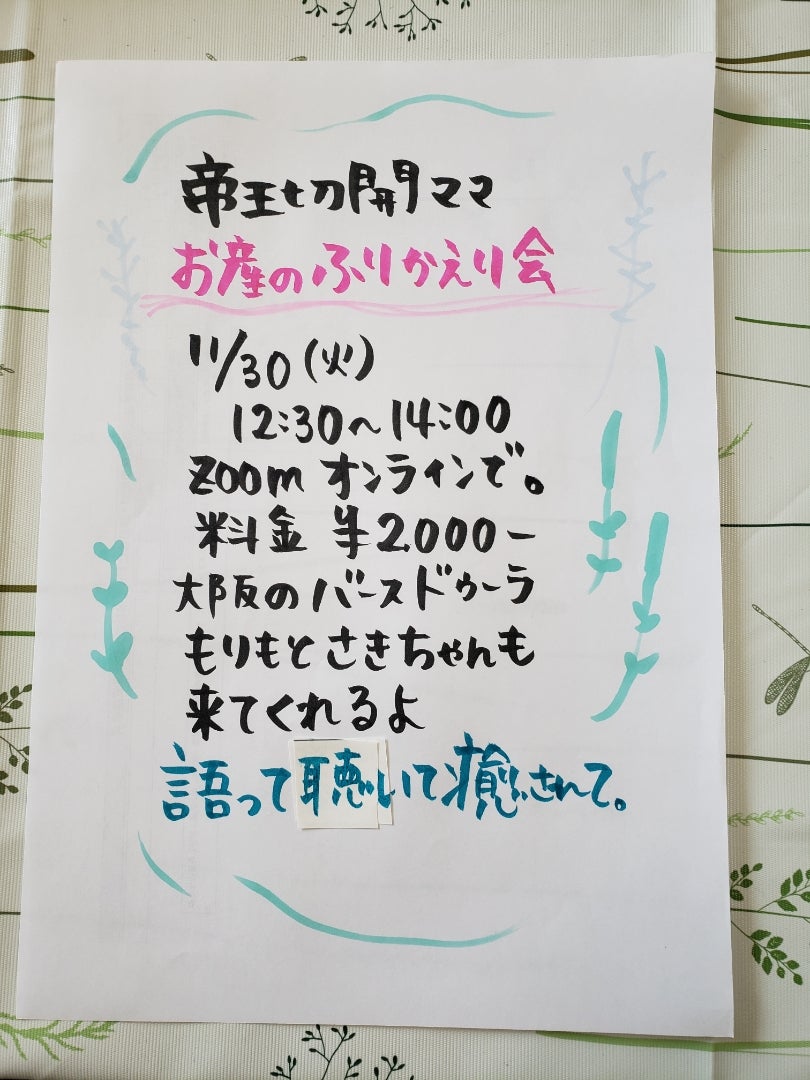 帝王切開ママ
お産のふりかえり会
11/30(火)
12:30〜14:00
zoomオンラインで。
料金 ¥2.000ー
大阪のバースドゥーラ
もりもとさきちゃんも
来てくれるよ
語って聴いて癒されて。